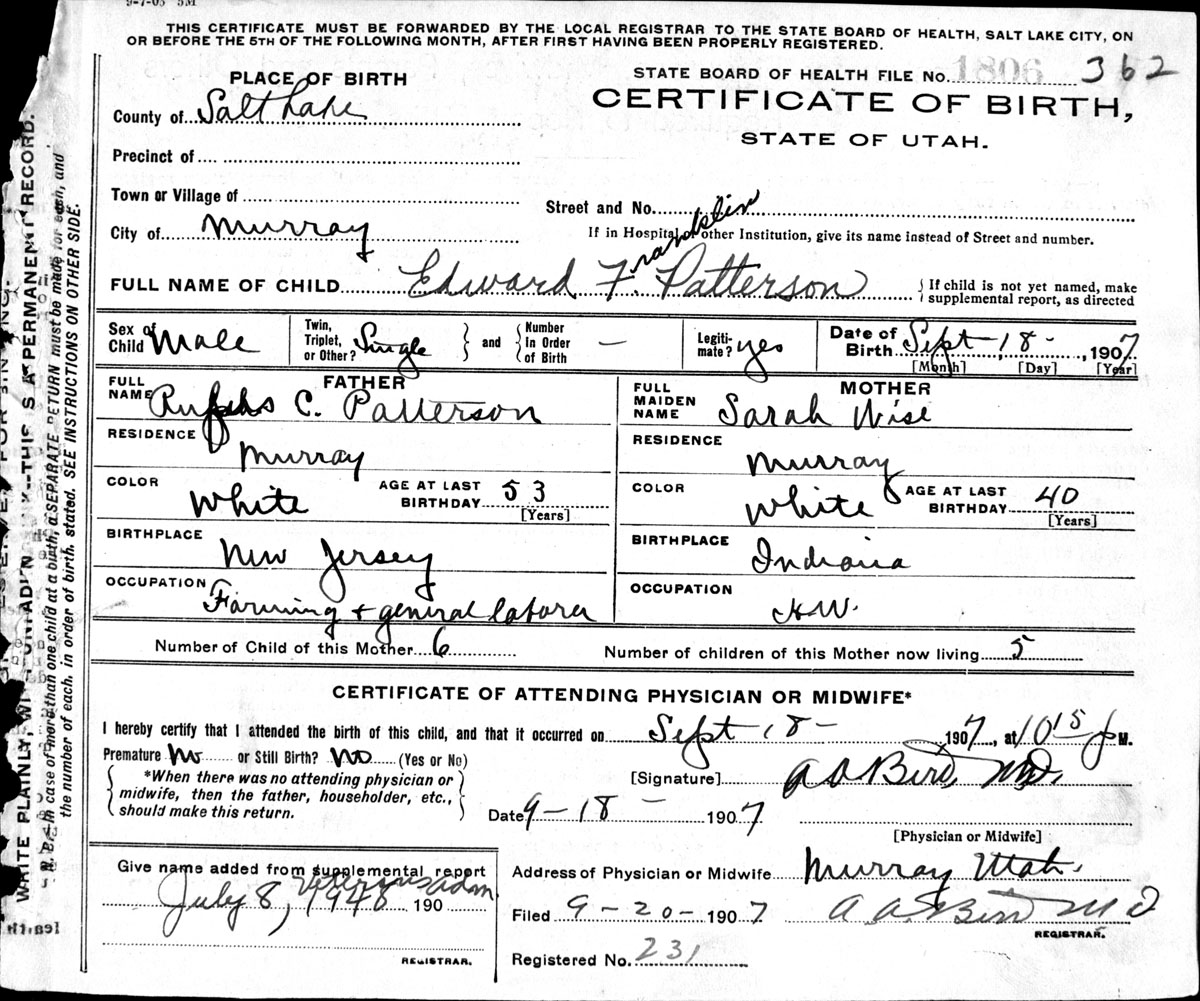 9-7-05 5M
THIS CERTIFICATE MUST BE FORWARDED BY THE LOCAL REGISTRAR TO THE STATE BOARD OF HEALTH, SALT LAKE CITY, ON
OR BEFORE THE 5TH OF THE FOLLOWING MONTH, AFTER FIRST HAVING BEEN PROPERLY REGISTERED.
PLACE OF BIRTH
STATE BOARD OF HEALTH FILE No. 1806 362
County of Salt Lake
CERTIFICATE OF BIRTH,
STATE OF UTAH.
Precinct of
Town or Village of
Street and No.
City of Murray
If in Hospital or other Institution, give its name instead of Street and number.
FULL NAME OF CHILD Edward F. Patterson
If child is not yet named, make
supplemental report, as directed
Sex of Child Male
Twin, Triplet, or Other? Single
and Number In Order of Birth —
Legitimate? yes
Date of Birth Sept 18 - , 1907
[Month] [Day] [Year]
FATHER
FULL NAME C. Patterson
RESIDENCE Murray
COLOR White AGE AT LAST BIRTHDAY 53 [Years]
BIRTHPLACE New Jersey
OCCUPATION Farming + general laborer
MOTHER
FULL MAIDEN NAME Sarah Wise
RESIDENCE Murray
COLOR White AGE AT LAST BIRTHDAY 40 [Years]
BIRTHPLACE Indiana
OCCUPATION H.W.
Number of Child of this Mother 6
Number of children of this Mother now living 5
CERTIFICATE OF ATTENDING PHYSICIAN OR MIDWIFE*
I hereby certify that I attended the birth of this child, and that it occurred on Sept 18 - 1907, at 10 15 P M.
Premature No or Still Birth? No (Yes or No)
*When there was no attending physician or
midwife, then the father, householder, etc.,
should make this return.
[Signature] Bird M.D.
Date 9-18- 1907
[Physician or Midwife]
Give name added from supplemental report
Veterans adm
July 8, 1948 190
REGISTRAR.
Address of Physician or Midwife Murray Utah.
Filed 9-20- 1907 A A. Bird M D
REGISTRAR.
Registered No. 231
WRITE PLAINLY, THIS IS A PERMANENT RECORD.
N. B.—In case of more than one child at a birth, a SEPARATE RETURN must be made for each, and
the number of each, in order of birth, stated. SEE INSTRUCTIONS ON OTHER SIDE.